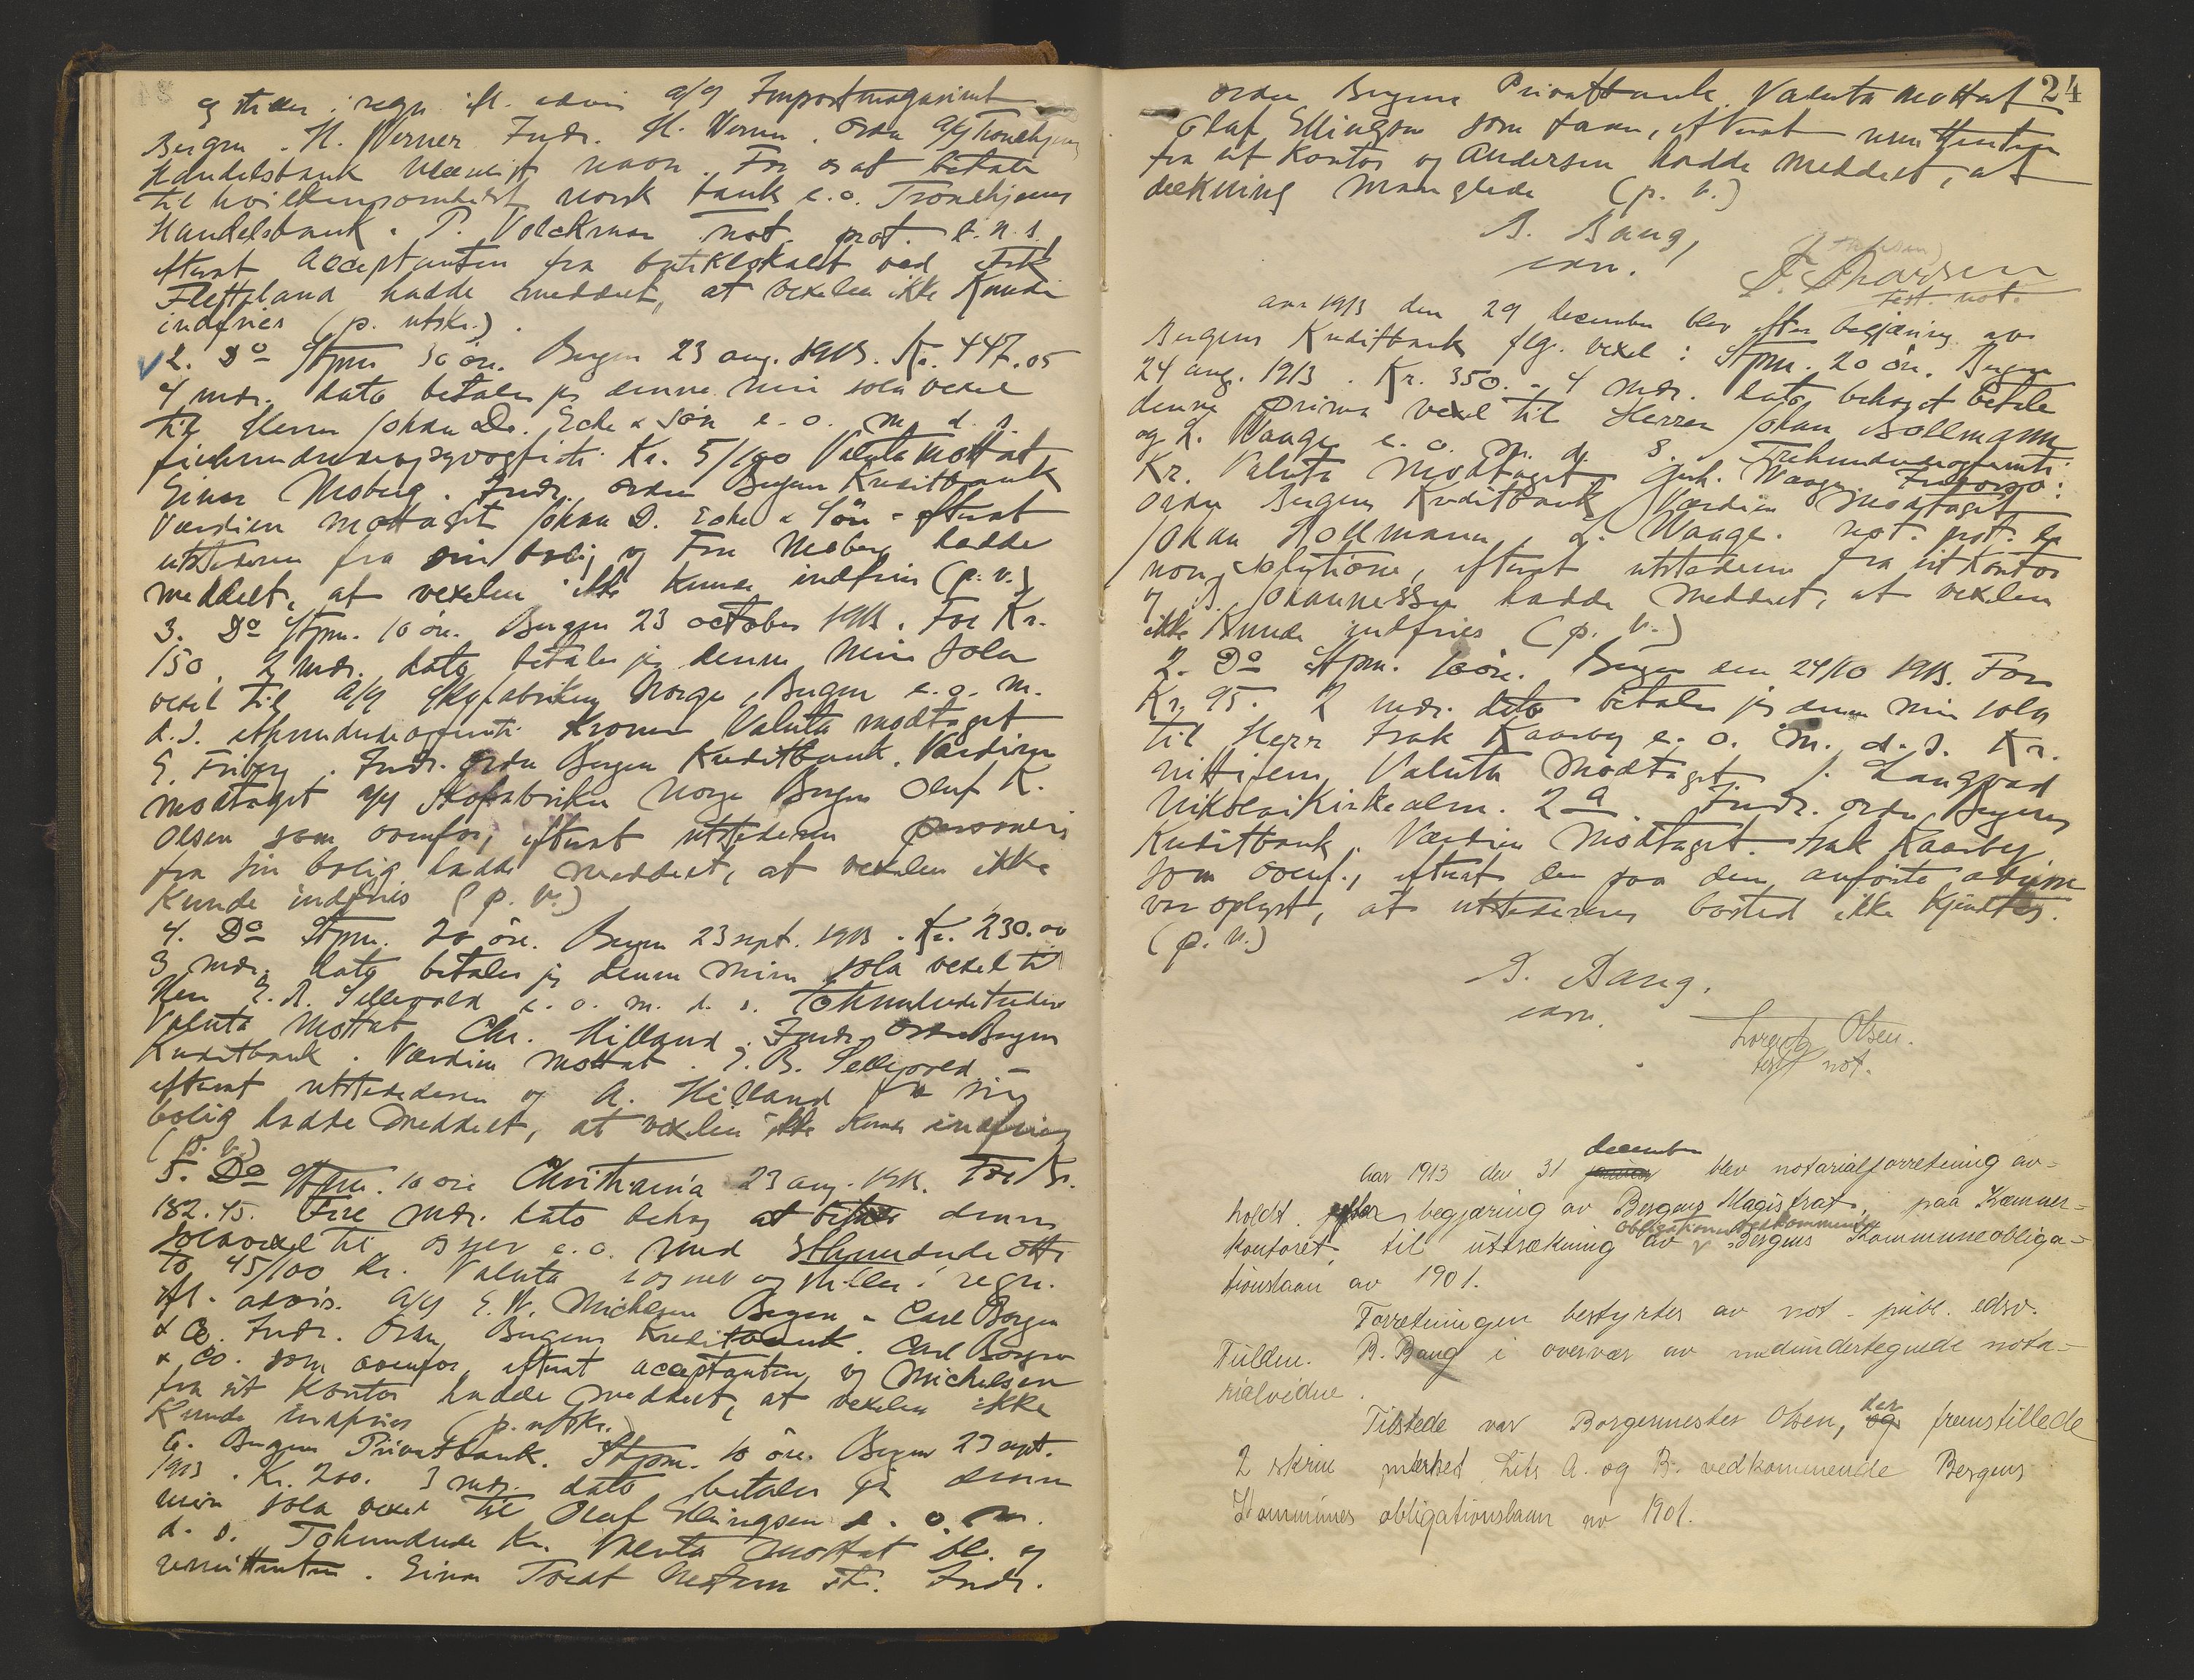 og stilles i regn. ifl. advis a/s Importmagasinet
Bergen. H. Werner Indr. H. Werner. Ordre a/s Tronhjems
Handelsbank navn. For os at betale
til hvilkensomhelst norsk bank e. o. Tronhjems
Handelsbank. P. Volckmar not. prot. d. n. s.
efterat Acceptanten fra butiklokalet ved Frk
Fletteland hadde meddelt, at vexelen ikke Kunde
indfries (p. utskr.).
2. Do Stpm. 30 øre. Bergen 23 aug. 1913. Kr. 447.05
4 mdr. dato betaler jeg denne min sola vexel
til Herrer Johan D. Eche & Søn e. o. m. d. s.
firehundredeogsyvogførti Kr. 5/100 Valuta mottat
Einar Moberg. Indr. ordre Bergens Kreditbank
Værdien mottaget Johan D. Eche & Søn - efterat
utstederen fra sin bolig og Fru Moberg hadde
meddelt, at vexelen ikke kunde indfries (p. v.)
3. Do Stpm. 10 øre. Bergen 23 october 1913. For Kr.
150. 2 mdr. dato betaler jeg denne min sola
vexel til a/s Skofabriken Norge, Bergen e. o. m.
d. s. ethundredeogfemti Kroner Valuta modtaget
E. Friberg. Indr. ordre Bergens Kreditbank. Værdien
modtaget a/s Skofabriken Norge Bergen Oluf K.
Olsen som ovenfor, efterat utstederen personlig
fra sin bolig hadde meddelt, at vexelen ikke
Kunde indfries (p. v.)
4. Do Stpm. 20 øre. Bergen 23 sept. 1913. Kr. 230.00
3 mdr. dato betaler jeg denne min sola vexel til
Herr E. B. Sellevold e. o. m. d. s. Tohundredetredive
Valuta mottat Chr. Hilland. Indr. ordre Bergens
Kreditbank. Værdien mottat. E. B. Sellevold -
efterat utstederen og A. Hilland fra sin
bolig hadde meddelt, at vexelen ikke kunde indfries
(p. v.)
5. Do Stpm. 10 øre Christiania 23 aug. 1913. For Kr.
182.45. Fire mdr. dato behag at betale denne
solavexel til os selv e. o. med Ethundrede otti
to 45/100 Kr. Valuta i os selv og stilles i regn.
ifl. advis. a/s E. W. Michelsen Bergen - Carl Borgen
& Co. Indr. Ordre Bergens Kreditbank. Carl Borgen
& Co. som ovenfor, efterat acceptanten og Michelsen
fra sit Kontor hadde meddelt, at vexelen ikke
Kunde indfries (p. utskr.)
6. Bergens Privatbank. Stpm. 10 øre. Bergen 23 sept.
1913. Kr. 200. 3 mdr. dato betaler jeg denne
min sola vexel til Oluf Ellingsen e. o. m.
d. s. Tohundrede Kr. Valuta mottat bl. og
remittenten. Einar Indr.
24
ordre Bergens Privatbank. Valuta mottat
Olaf Ellingsen som foran, efterat remittenten
fra sit Kontor og Andersen hadde meddelt, at
dækning manglede (p. v.)
B. Bang,
edsv.
test. not.
aar 1913 den 29 december blev efter begjæring av
Bergens Kreditbank flg. vexel: Stpm. 20 øre. Bergen
24 aug. 1913. Kr. 350.- 4 mdr. dato behaget betale
denne prima vexel til Herrer Johan Bollmann
og L. Waage e. o. m. d. s. Trehundredeogfemti
Kr. Valuta Modtaget Joh. Waage
ordre Bergens Kreditbank Værdien modtaget
Johan Bollmann, L. Waage. not. prot. de
non solutione, efterat utstederen fra sit Kontor
og B. Johannessen hadde meddelt, at vexelen
ikke Kunde indfries (p. v.)
2. Do Stpm. 10 øre. Bergen den 24/10 1913. For
Kr. 95. 2 mdr. dato betaler jeg denne min sola
til Herr Isak Kaarby e. o. m. d. s. Kr.
nittifem, Valuta Modtaget J. Langvad
Nikolaikirkealm. 2 a Indr. ordre Bergens
Kreditbank. Værdien Modtaget. Isak Kaarby,
som ovenf., efterat der paa den anførte adresse
var oplyst, at utstederens bosted ikke kjendtes.
(p. v.)
B. Bang.
edsv.
Olsen.
test not.
december
Aar 1913 den 31 januar blev notarialforretning av-
holdt efter begjæring av Bergens Magistrat paa Kæmner-
kontoret til uttrækning av Bergens Kommuneobliga-
tionslaan av 1901.
Forretningen bestyrtes av not. publ. edsv.
Fuldm. B. Bang i overvær av medundertegnede nota-
rialvidne.
Tilstede var Borgermester Olsen, og der fremstillede
2 skrin merket Litr A. og B. vedkommende Bergens
Kommunes obligationslaan av 1901.